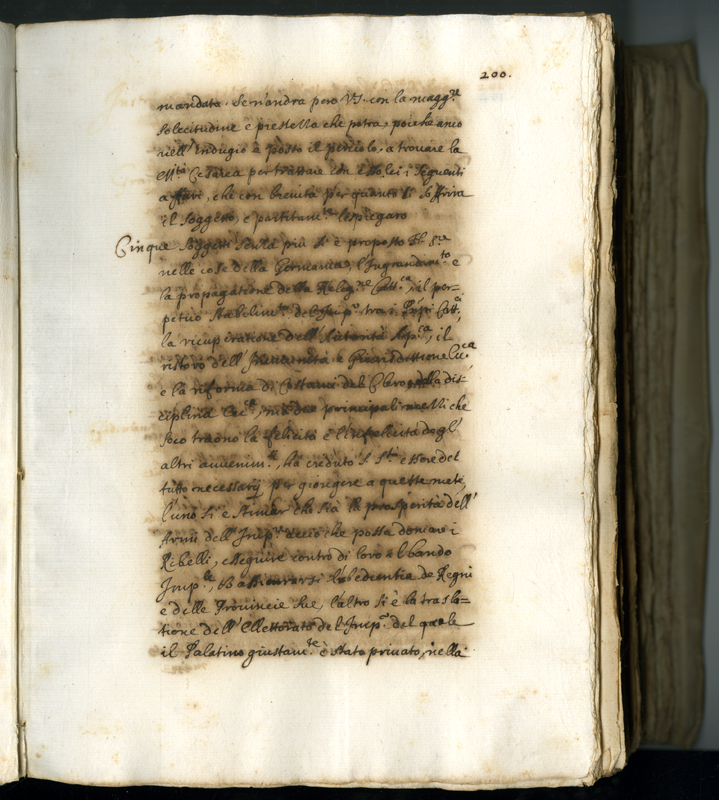 200.
mandata. Se n'andrà però V.S. con la magg.re
solecitudine e prestezza che potrà, poiche anco
nell'indugio è posto il pericolo, a trovare la
M.tà Cesarea per trattare con esso lei i seguenti
affari, che con brevità per quanto si soffrirà
il soggetto, e partitam.te le spiegarò
Cinque soggetti senza più si è proposto
nelle cose della Germania, l'Ingrandim.to e
la propagatione della Relig.ne Catt.ca, il per=
petuo stabilim.to del Imp.o tra i Pnpi Catt.ci,
la recuperatione dell'Autorità Ap.ca, il
ristoro dell'Immunità e Giurisdittione Ecc.ca
e la riforma di Costumi del Clero e della dis=
ciplina Ecc.ca, ma due principali mezzi che
seco traono la felicità e l'infelicità degl'
altri avvenim.ti, ha creduto S. S.tà essere del
tutto necessarij per giongere a queste mete,
l'uno si è che sia la prosperità dell'
Armi dell'Imp.re acciò che possa domare i
Ribelli, esseguire contro di loro il bando
Imp.le, assicurarsi l'obedientia de Regni
e delle Provincie sue, l'altro si è la trasla=
tione dell'Elettorato del Imp.o del quale
il Palatino giustam.te è stato privato, nella